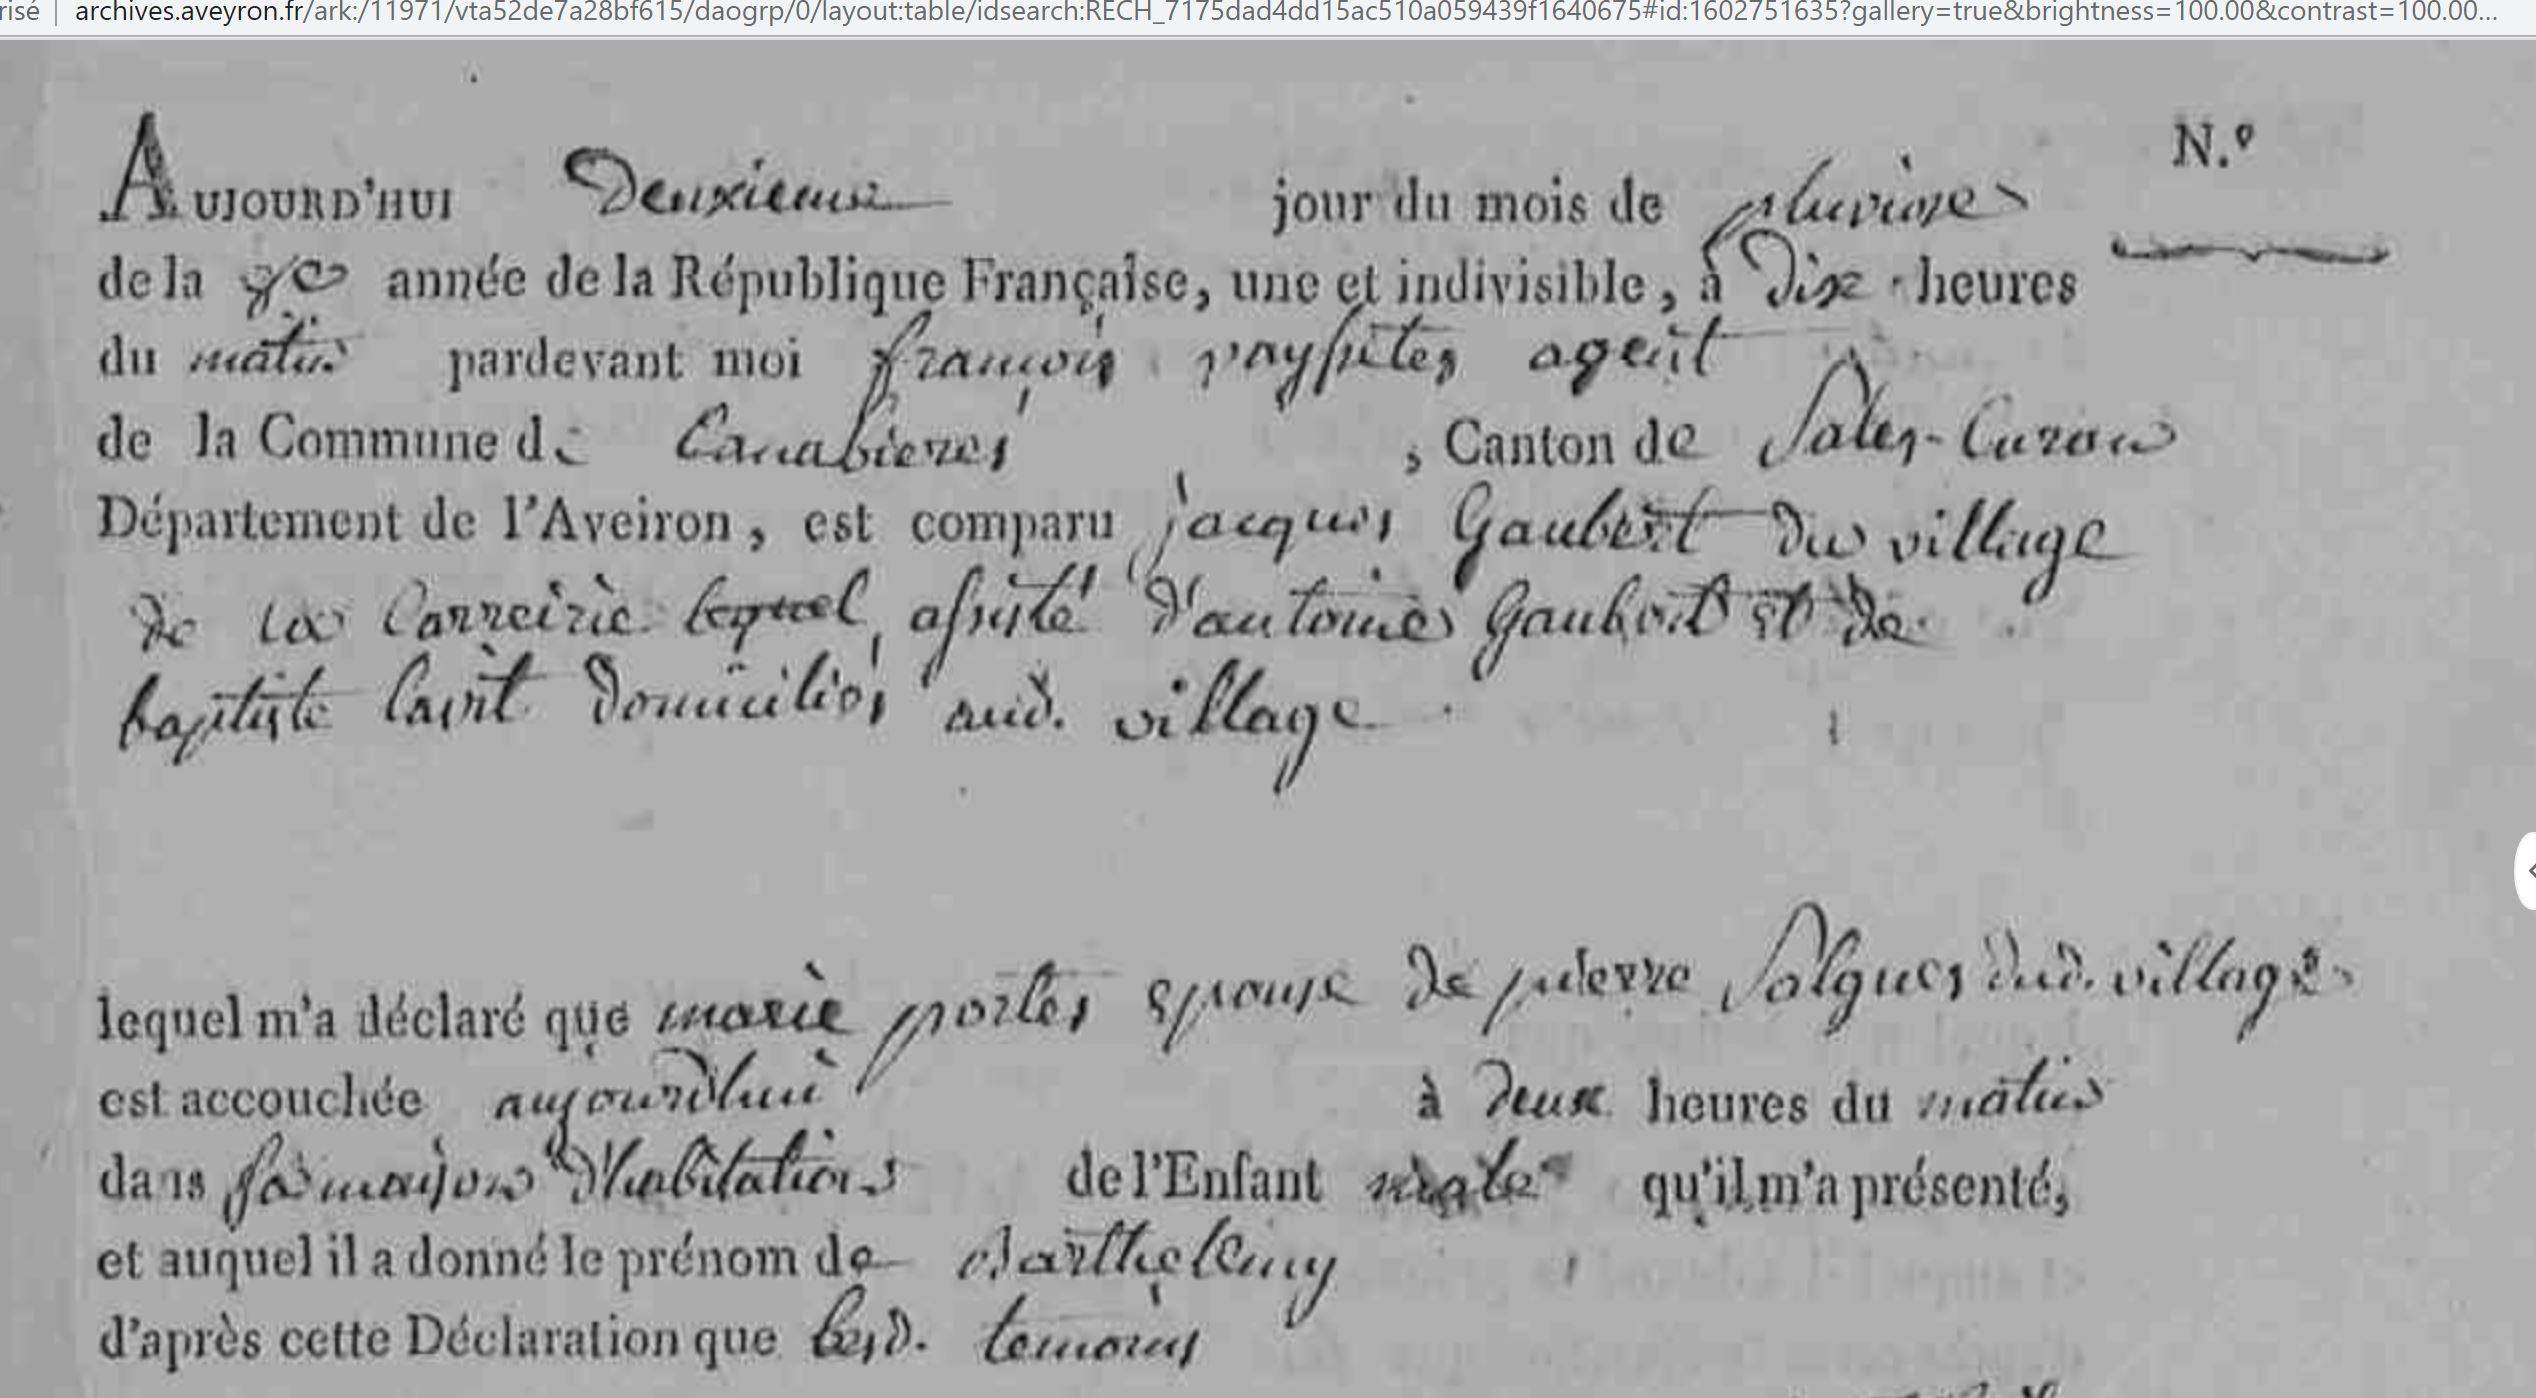 risé | archives.aveyron.fr/ark:/11971/vta52de7a28bf615/daogrp/0/layout:table/idsearch:RECH_7175dad4dd15ac510a059439f1640675#id:1602751635?gallery=true&brightness=100.00&contrast=100.00...
N.º
AUJOURD'HUI Deuxieme jour du mois de pluviose
de la année de la République Française, une et indivisible, à dix heures
du matin pardevant moi françois vayssettes agent
de la Commune de Canabieres, Canton de Sales-Curan
Département de l'Aveiron, est comparu jacques Gaubert du village
de la Carreirie lequel, assisté d'antoine Gaubert et de
baptiste domiciliés aud. village
lequel m'a déclaré que marie portes epouse de pierre Salgues dud. village
est accouchée aujourd'hui à deux heures du matin
dans sa maison d'habitation de l'Enfant male qu'il m'a présenté,
et auquel il a donné le prénom de Barthelemy
d'après cette Déclaration que lesd. temoins